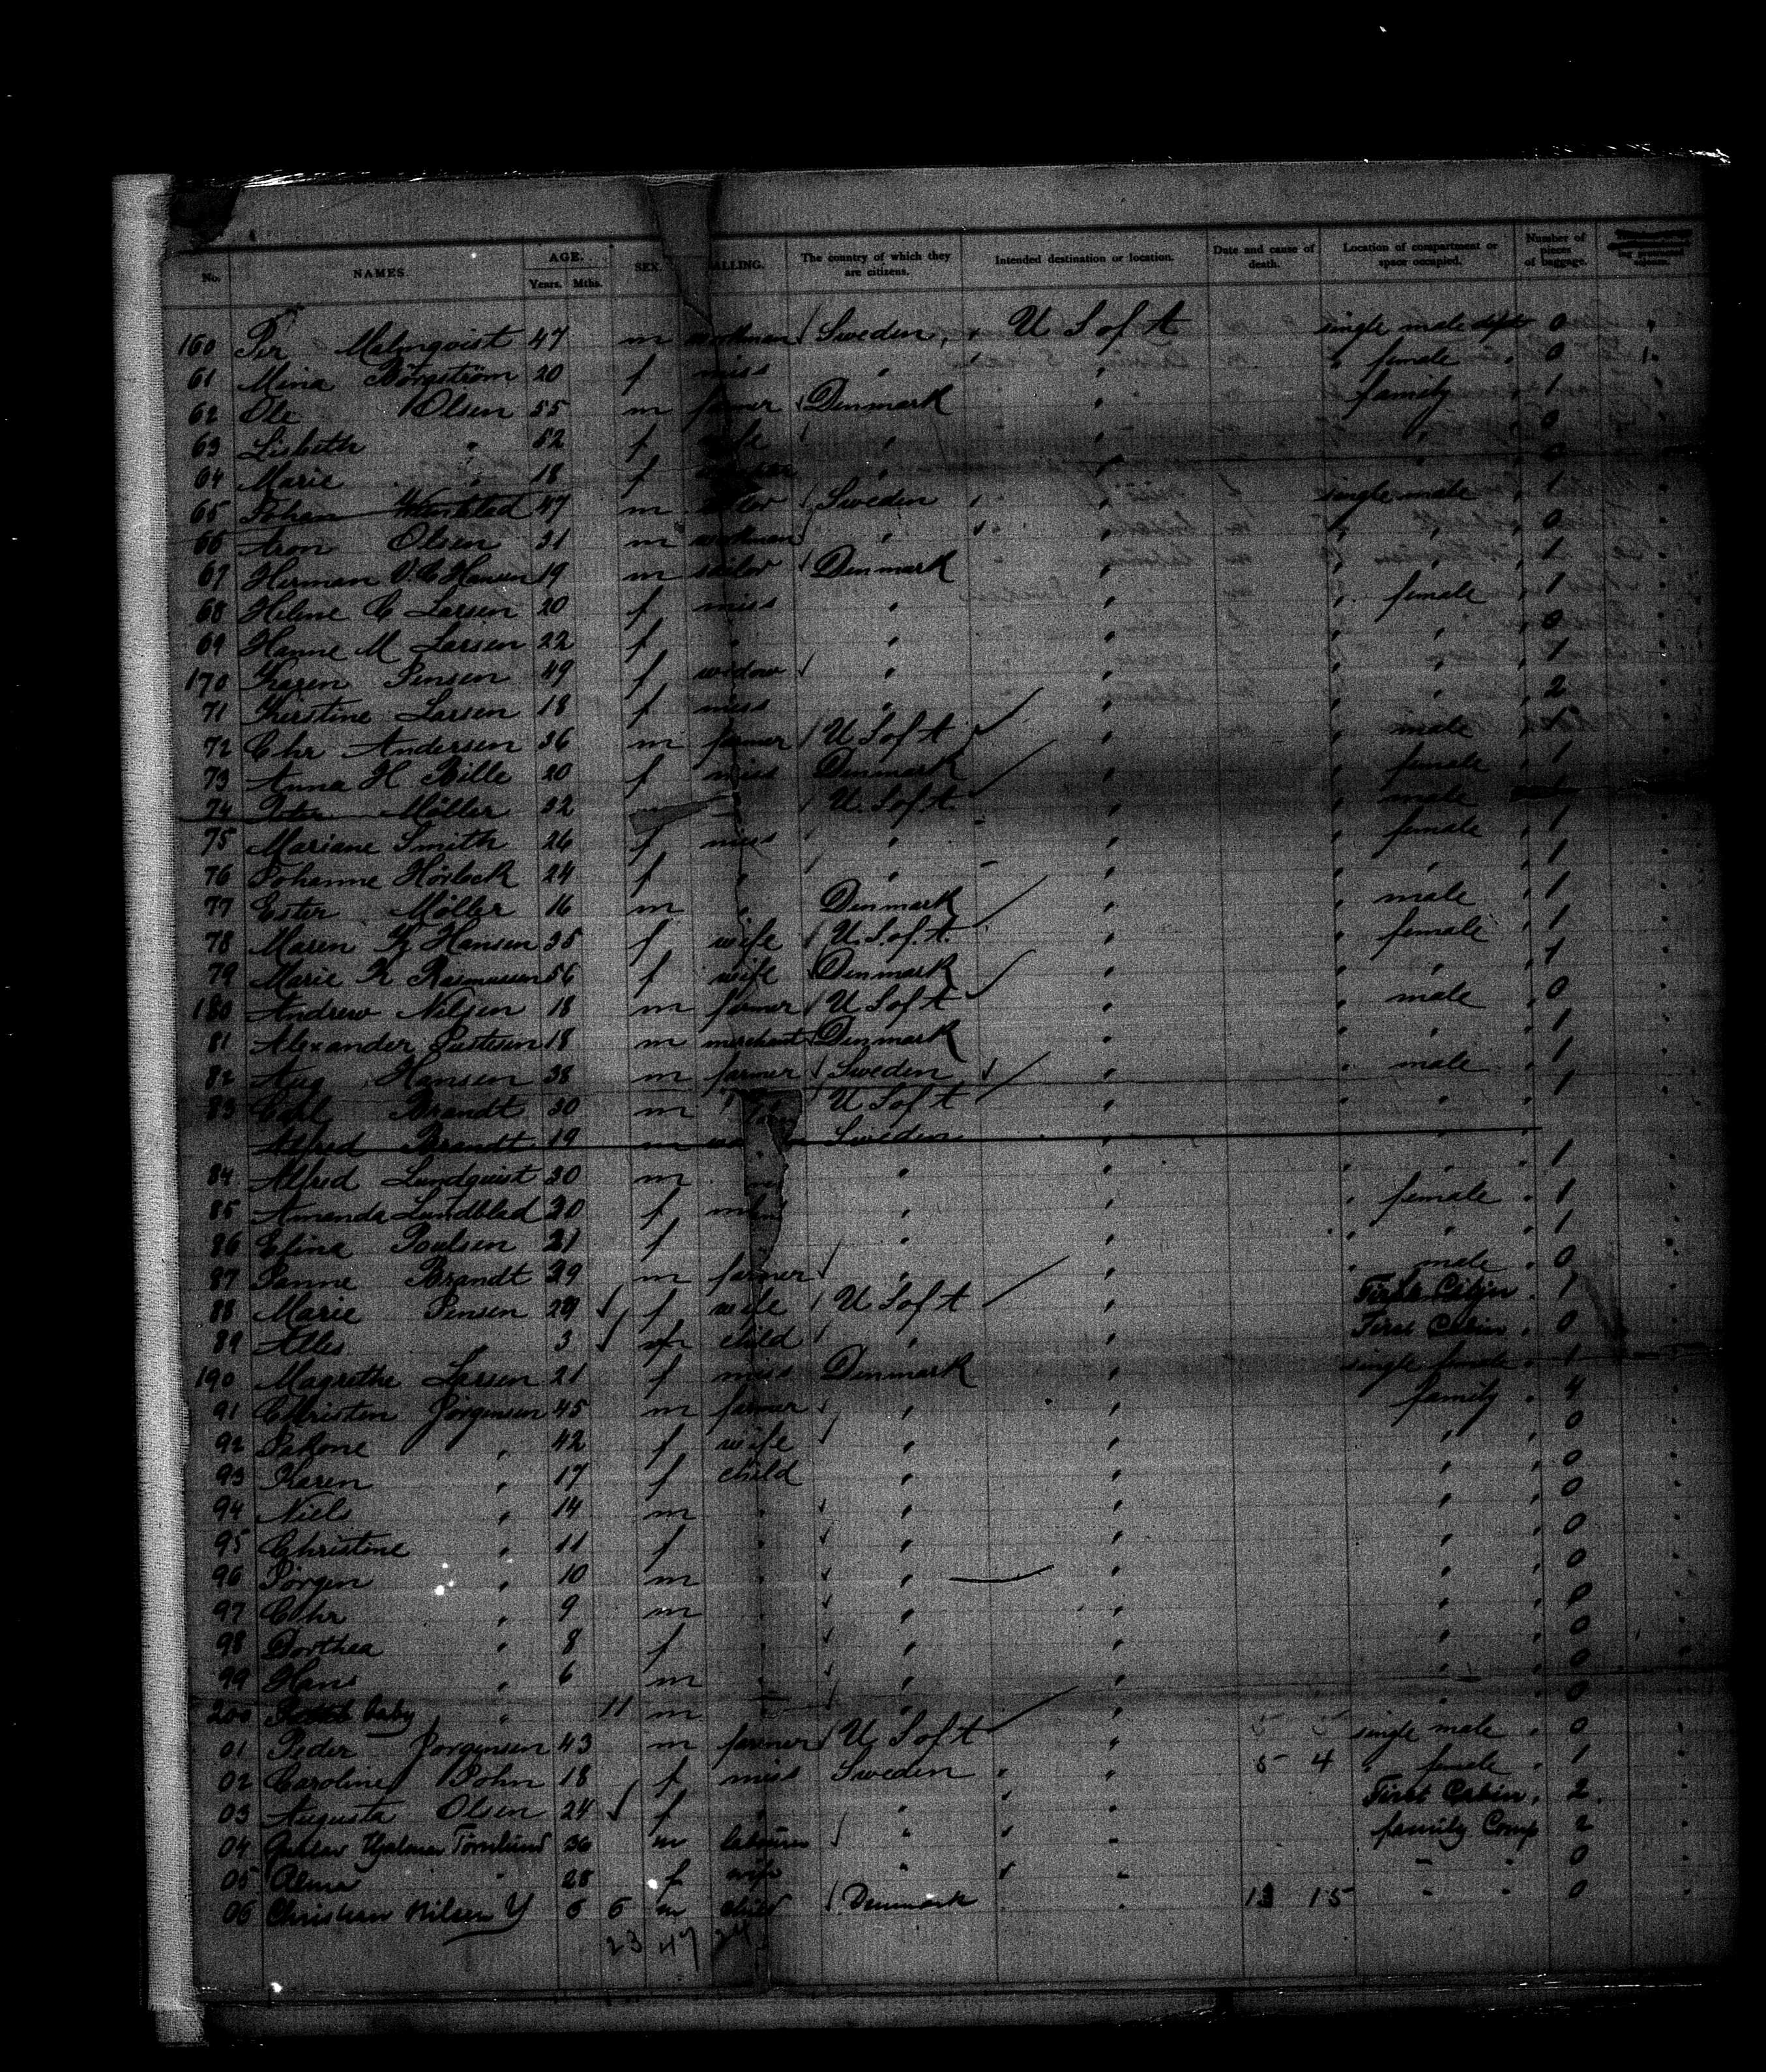 No. NAMES. AGE. Years. Mths. SEX. CALLING. The country of which they are citizens. Intended destination or location. Date and cause of death. Location of compartment or space occupied. Number of pieces of baggage.
160 Per Malmquist 47 m workman Sweden, U S of A single male dept 0
61 Mina Börgström 20 f miss " " " female " 0
62 Ole Olsen 55 m farmer Denmark " family " 1
63 Lisbeth " 52 f wife " " " " 0
64 Marie " 18 f " " " " 0
65 Johan 47 m Sweden " single male " 1
66 Aron Olsen 31 m workman " " " " " 0
67 Herman V. C Hansen 19 m sailor Denmark " " " " 1
68 Helene C Larsen 20 f miss " " " female " 1
69 Hanne M Larsen 22 f " " " " " " 0
170 Karen Jensen 49 f widow " " " " " 1
71 Kirstine Larsen 18 f miss " " " " " 2
72 Chr Andersen 36 m farmer U S of A " " male "
73 Anna H Bille 20 f miss Denmark " " female " 1
74 Peter Möller 32 U. S of A " " male
75 Mariane Smith 26 f miss " " " female " 1
76 Johanne Hörbeck 24 f " " " " " " 1
77 Ester Möller 16 m " Denmark " " male " 1
78 Maren K Hansen 35 f wife U. S. of. A. " " female " 1
79 Marie K Rasmussen 56 f wife Denmark " " " " 1
180 Andrew Nilsen 18 m farmer U S of A " " male " 0
81 Alexander Justesen 18 m merchant Denmark " " " " 1
82 Aug Hansen 38 m farmer Sweden " " male " 1
83 Carl Brandt 30 m U S of A " " " " 1
Alfred Brandt 19 m Sweden " " "
84 Alfred Lundquist 30 m " " " " " 1
85 Amanda Lundblad 20 f " " " female " 1
86 Elina Poulsen 21 f " " " " " 1
87 Janne Brandt 29 m farmer " " " male " 0
88 Marie Jensen 29 f wife U S of A " First Cabin " 1
89 Elles 3 child " " First Cabin " 0
190 Magrethe Larsen 21 f miss Denmark " single female " 1
91 Christen Jörgensen 45 m farmer " " family " 4
92 " 42 f wife " " " " 0
93 Karen " 17 f child " " " " 0
94 Niels " 14 m " " " " " 0
95 Christine " 11 f " " " " " 0
96 Jörgen " 10 m " " " " " 0
97 Chr " 9 m " " " " " 0
98 Dorthea " 8 f " " " " " 0
99 Hans " 6 m " " " " " 0
200 baby " 11 m " " " " 0
01 Peder Jorgensen 43 m farmer U S of A " 5 5 single male " 0
02 Caroline John 18 f miss Sweden " " 5 4 " female " 1
03 Augusta Olsen 24 f " " " " First Cabin " 2
04 Gustav Hjalmar Törnlund 36 m labourer " " " family Comp 2
05 Alma " 28 f wife " " " " " 0
06 Christian Nilsen Y 5 6 m child Denmark " 13 15 " " 0
23 47 24